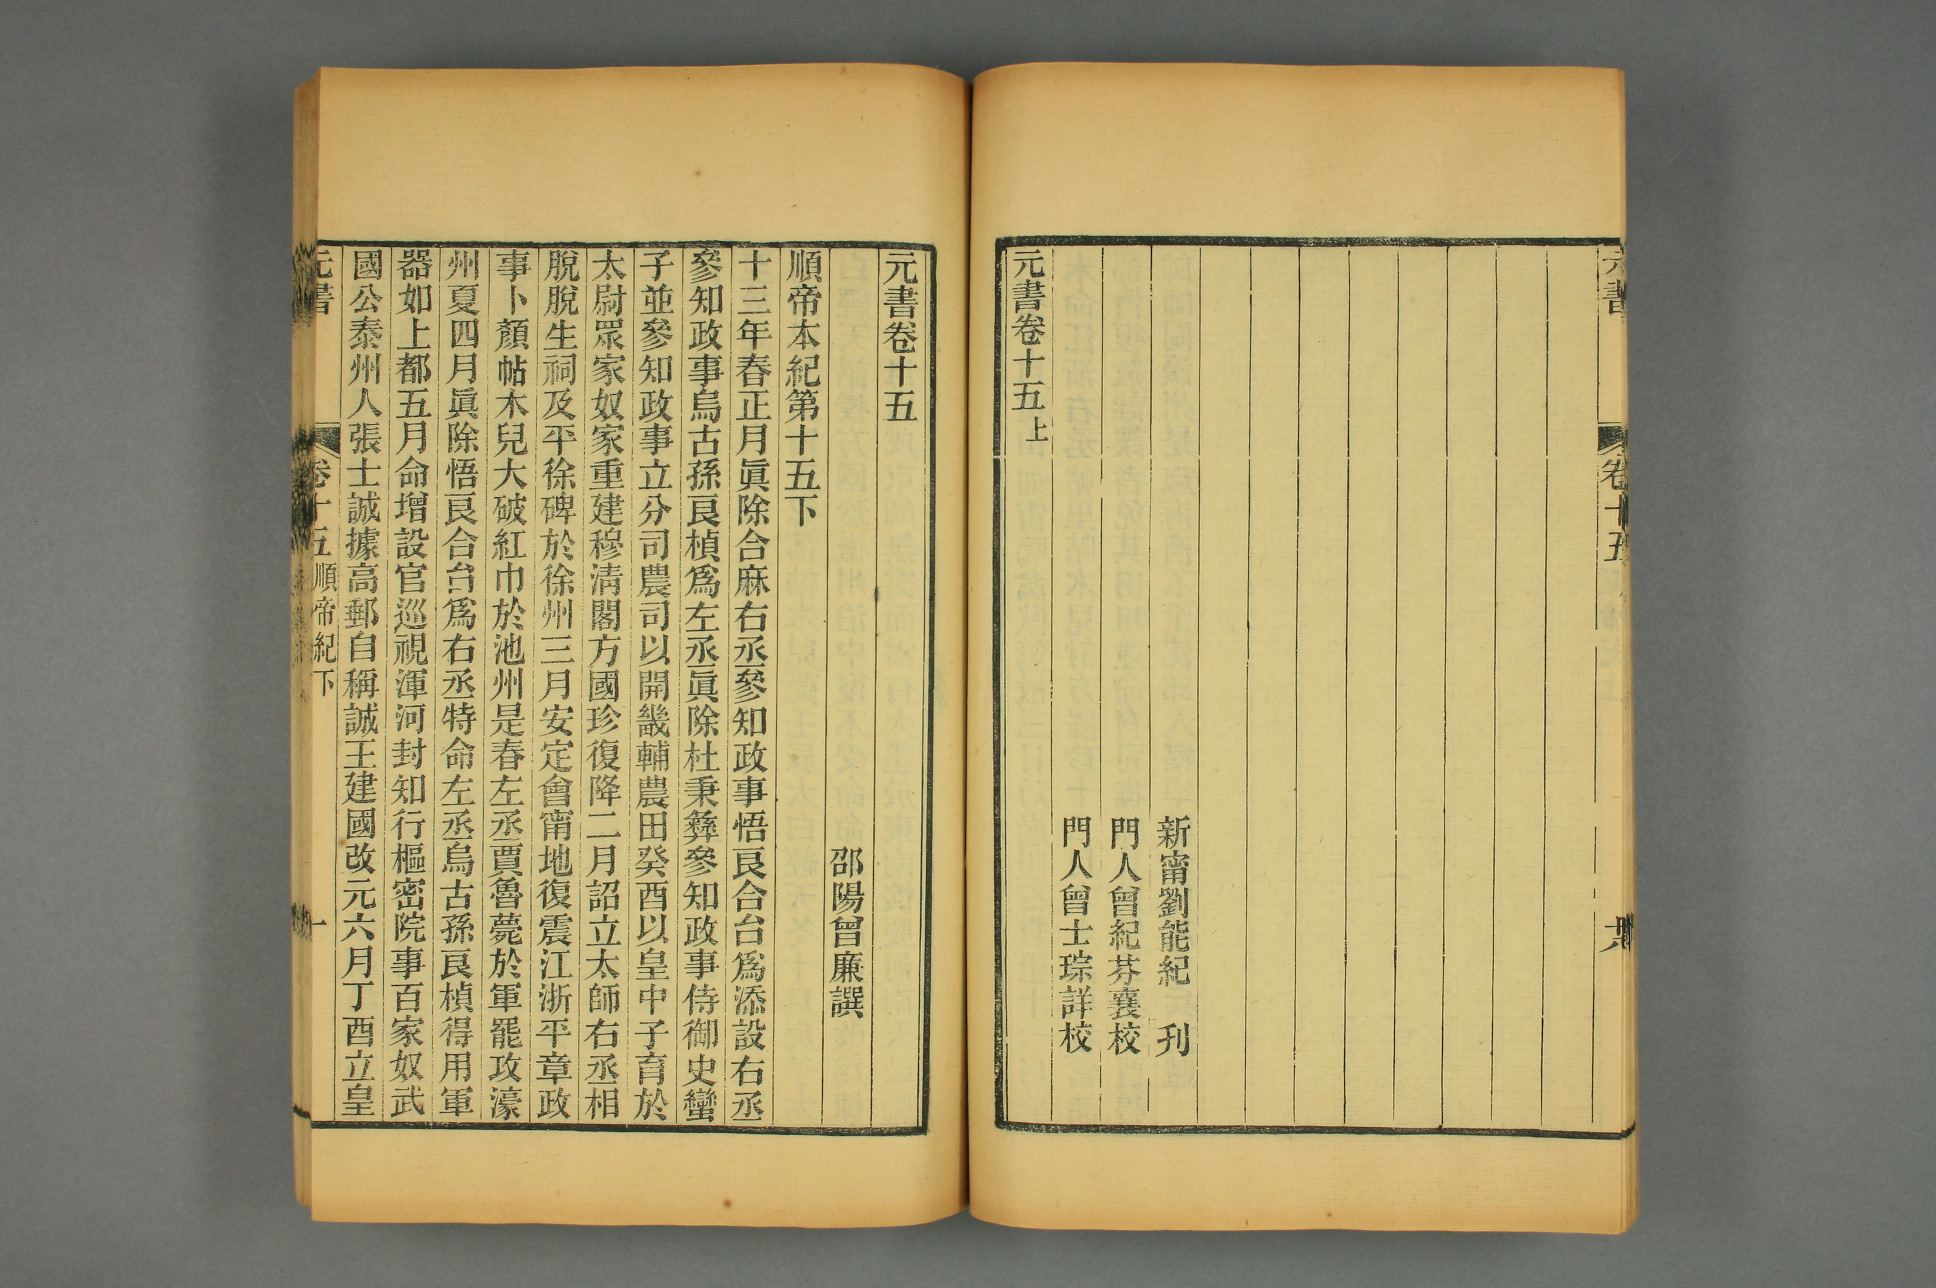 元書
卷十五
新甯劉能紀 刊
門人曾紀芬襄校
門人曾士琮詳校
元書卷十五上
元書卷十五
邵陽曾廉譔
順帝本紀第十五下
十三年春正月眞除合麻右丞參知政事悟良合台爲添設右丞
參知政事烏古孫良楨爲左丞眞除杜秉彝參知政事侍御史蠻
子並參知政事立分司農司以開畿輔農田癸酉以皇中子育於
太尉眾家奴家重建穆淸閣方國珍復降二月詔立太師右丞相
脫脫生祠及平徐碑於徐州三月安定會甯地復震江浙平章政
事卜顏帖木兒大破紅巾於池州是春左丞賈魯薨於軍罷攻濠
州夏四月眞除悟良合台爲右丞特命左丞烏古孫良楨得用軍
器如上都五月命增設官巡視渾河封知行樞密院事百家奴武
國公泰州人張士誠據高郵自稱誠王建國改元六月丁酉立皇
元書
卷十五順帝紀下
一